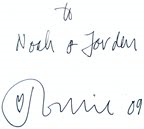 to
Noah & Jorden
09